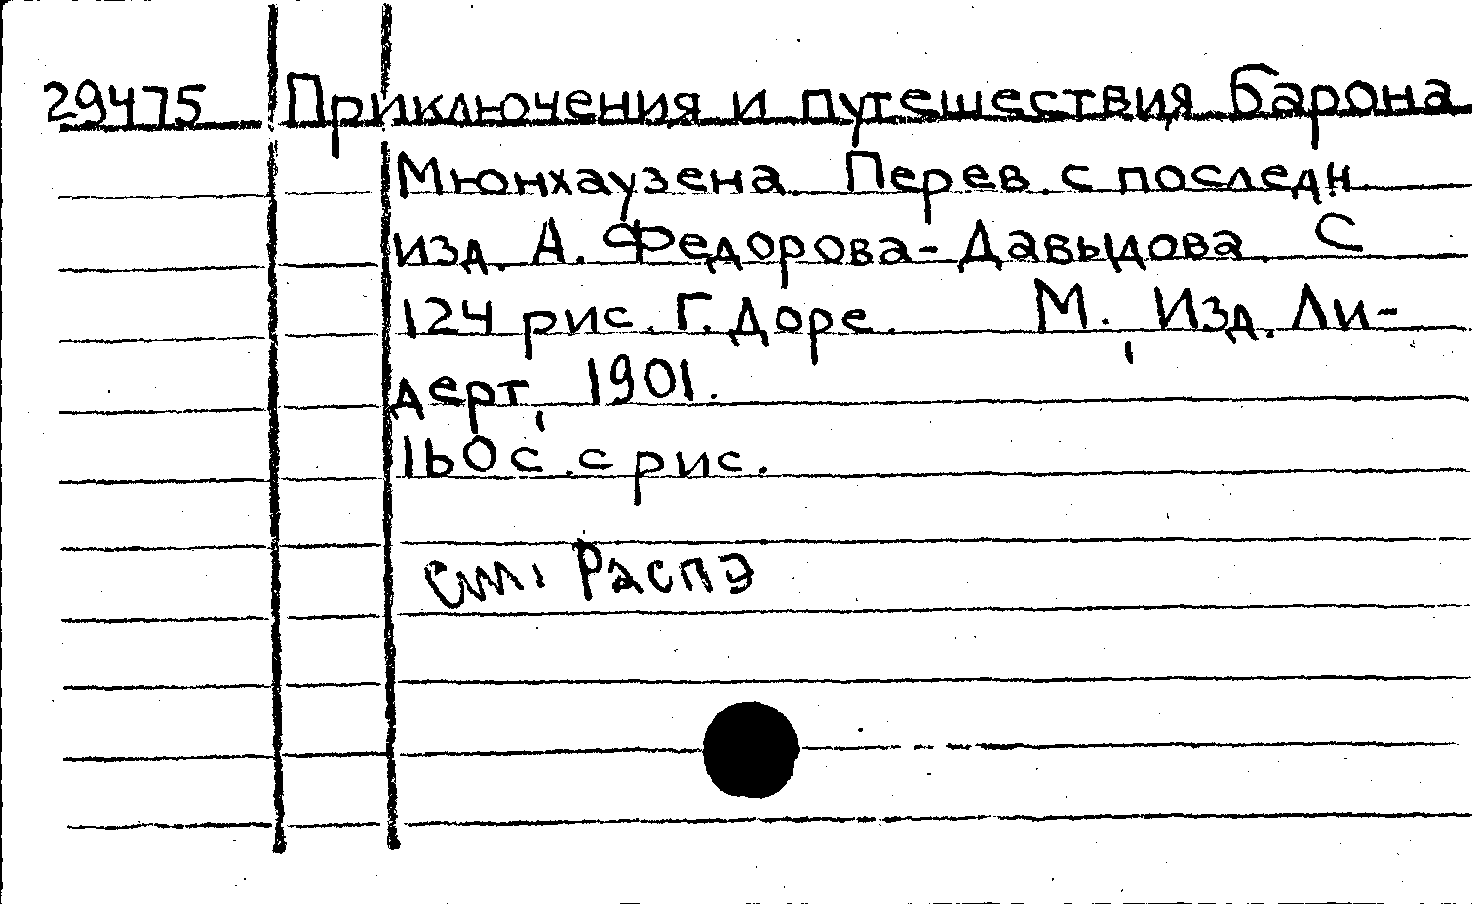 29475 Приключения и путешествия барона
Мюнхаузена. Перев. с последн.
изд. А. Федорова-Давыдова. С
124 рис. Г. Доре. М., Изд. Ли-
дерт, 1901.
160 с. с рис.
см. Распэ